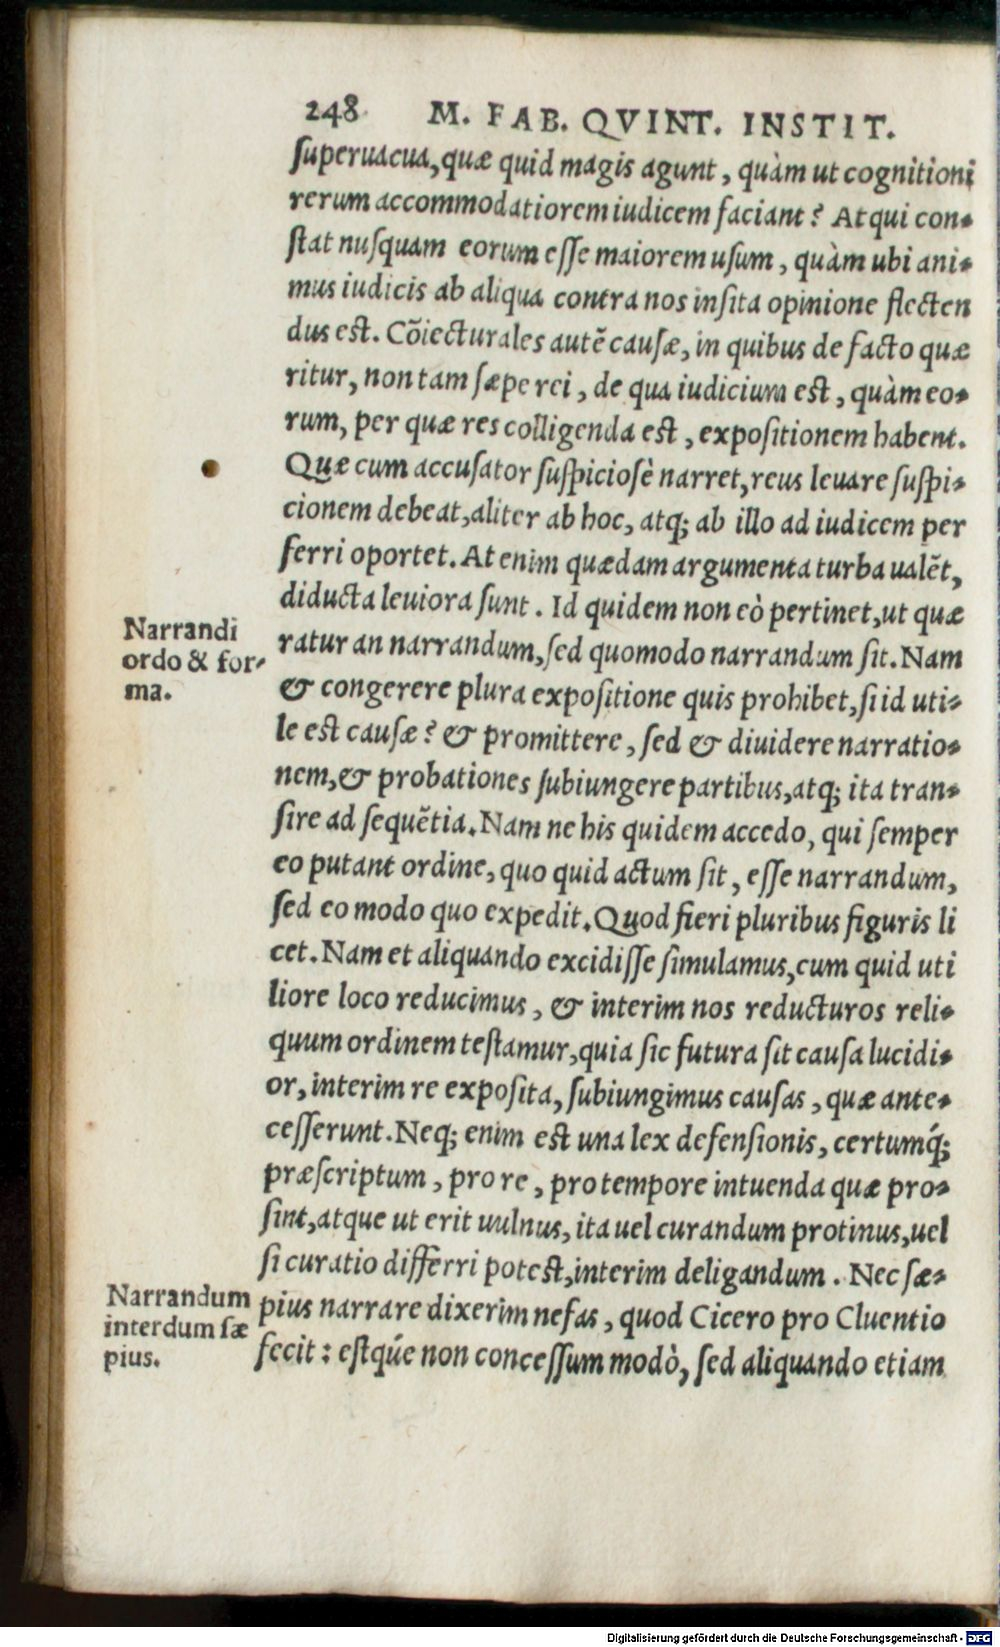 248 M. FAB. QVINT. INSTIT.
ſuperuacua, quæ quid magis agunt, quàm ut cognitioni
rerum accommodatiorem iudicem faciant? Atqui con-
ſtat nuſquam eorum eſſe maiorem uſum, quàm ubi ani-
mus iudicis ab aliqua contra nos inſita opinione flecten
dus eſt. Cõiecturales autẽ cauſæ, in quibus de facto quæ
ritur, non tam ſæpe rei, de qua iudicium eſt, quàm eo-
rum, per quæ res colligenda eſt, expoſitionem habent.
Quæ cum accuſator ſuſpicioſè narret, reus leuare ſuſpi-
cionem debeat, aliter ab hoc, atq; ab illo ad iudicem per
ferri oportet. At enim quædam argumenta turba ualẽt,
diducta leuiora ſunt. Id quidem non eò pertinet, ut quæ
Narrandi
ordo & for-
ma.
ratur an narrandum, ſed quomodo narrandum ſit. Nam
& congerere plura expoſitione quis prohibet, ſi id uti-
le eſt cauſæ? & promittere, ſed & diuidere narratio-
nem, & probationes ſubiungere partibus, atq; ita tran-
ſire ad ſequẽtia. Nam ne his quidem accedo, qui ſemper
eo putant ordine, quo quid actum ſit, eſſe narrandum,
ſed eo modo quo expedit. Quod fieri pluribus figuris li
cet. Nam et aliquando excidiſſe ſimulamus, cum quid uti
liore loco reducimus, & interim nos reducturos reli-
quum ordinem teſtamur, quia ſic futura ſit cauſa lucidi-
or, interim re expoſita, ſubiungimus cauſas, quæ ante-
ceſſerunt. Neq; enim eſt una lex defenſionis, certumq́;
præſcriptum, pro re, pro tempore intuenda quæ pro-
ſint, atque ut erit uulnus, ita uel curandum protinus, uel
ſi curatio differri poteſt, interim deligandum. Nec ſæ-
Narrandum
interdum ſæ
pius.
pius narrare dixerim nefas, quod Cicero pro Cluentio
fecit: eſtq́ue non conceſſum modò, ſed aliquando etiam
Digitalisierung gefördert durch die Deutsche Forschungsgemeinschaft - DFG